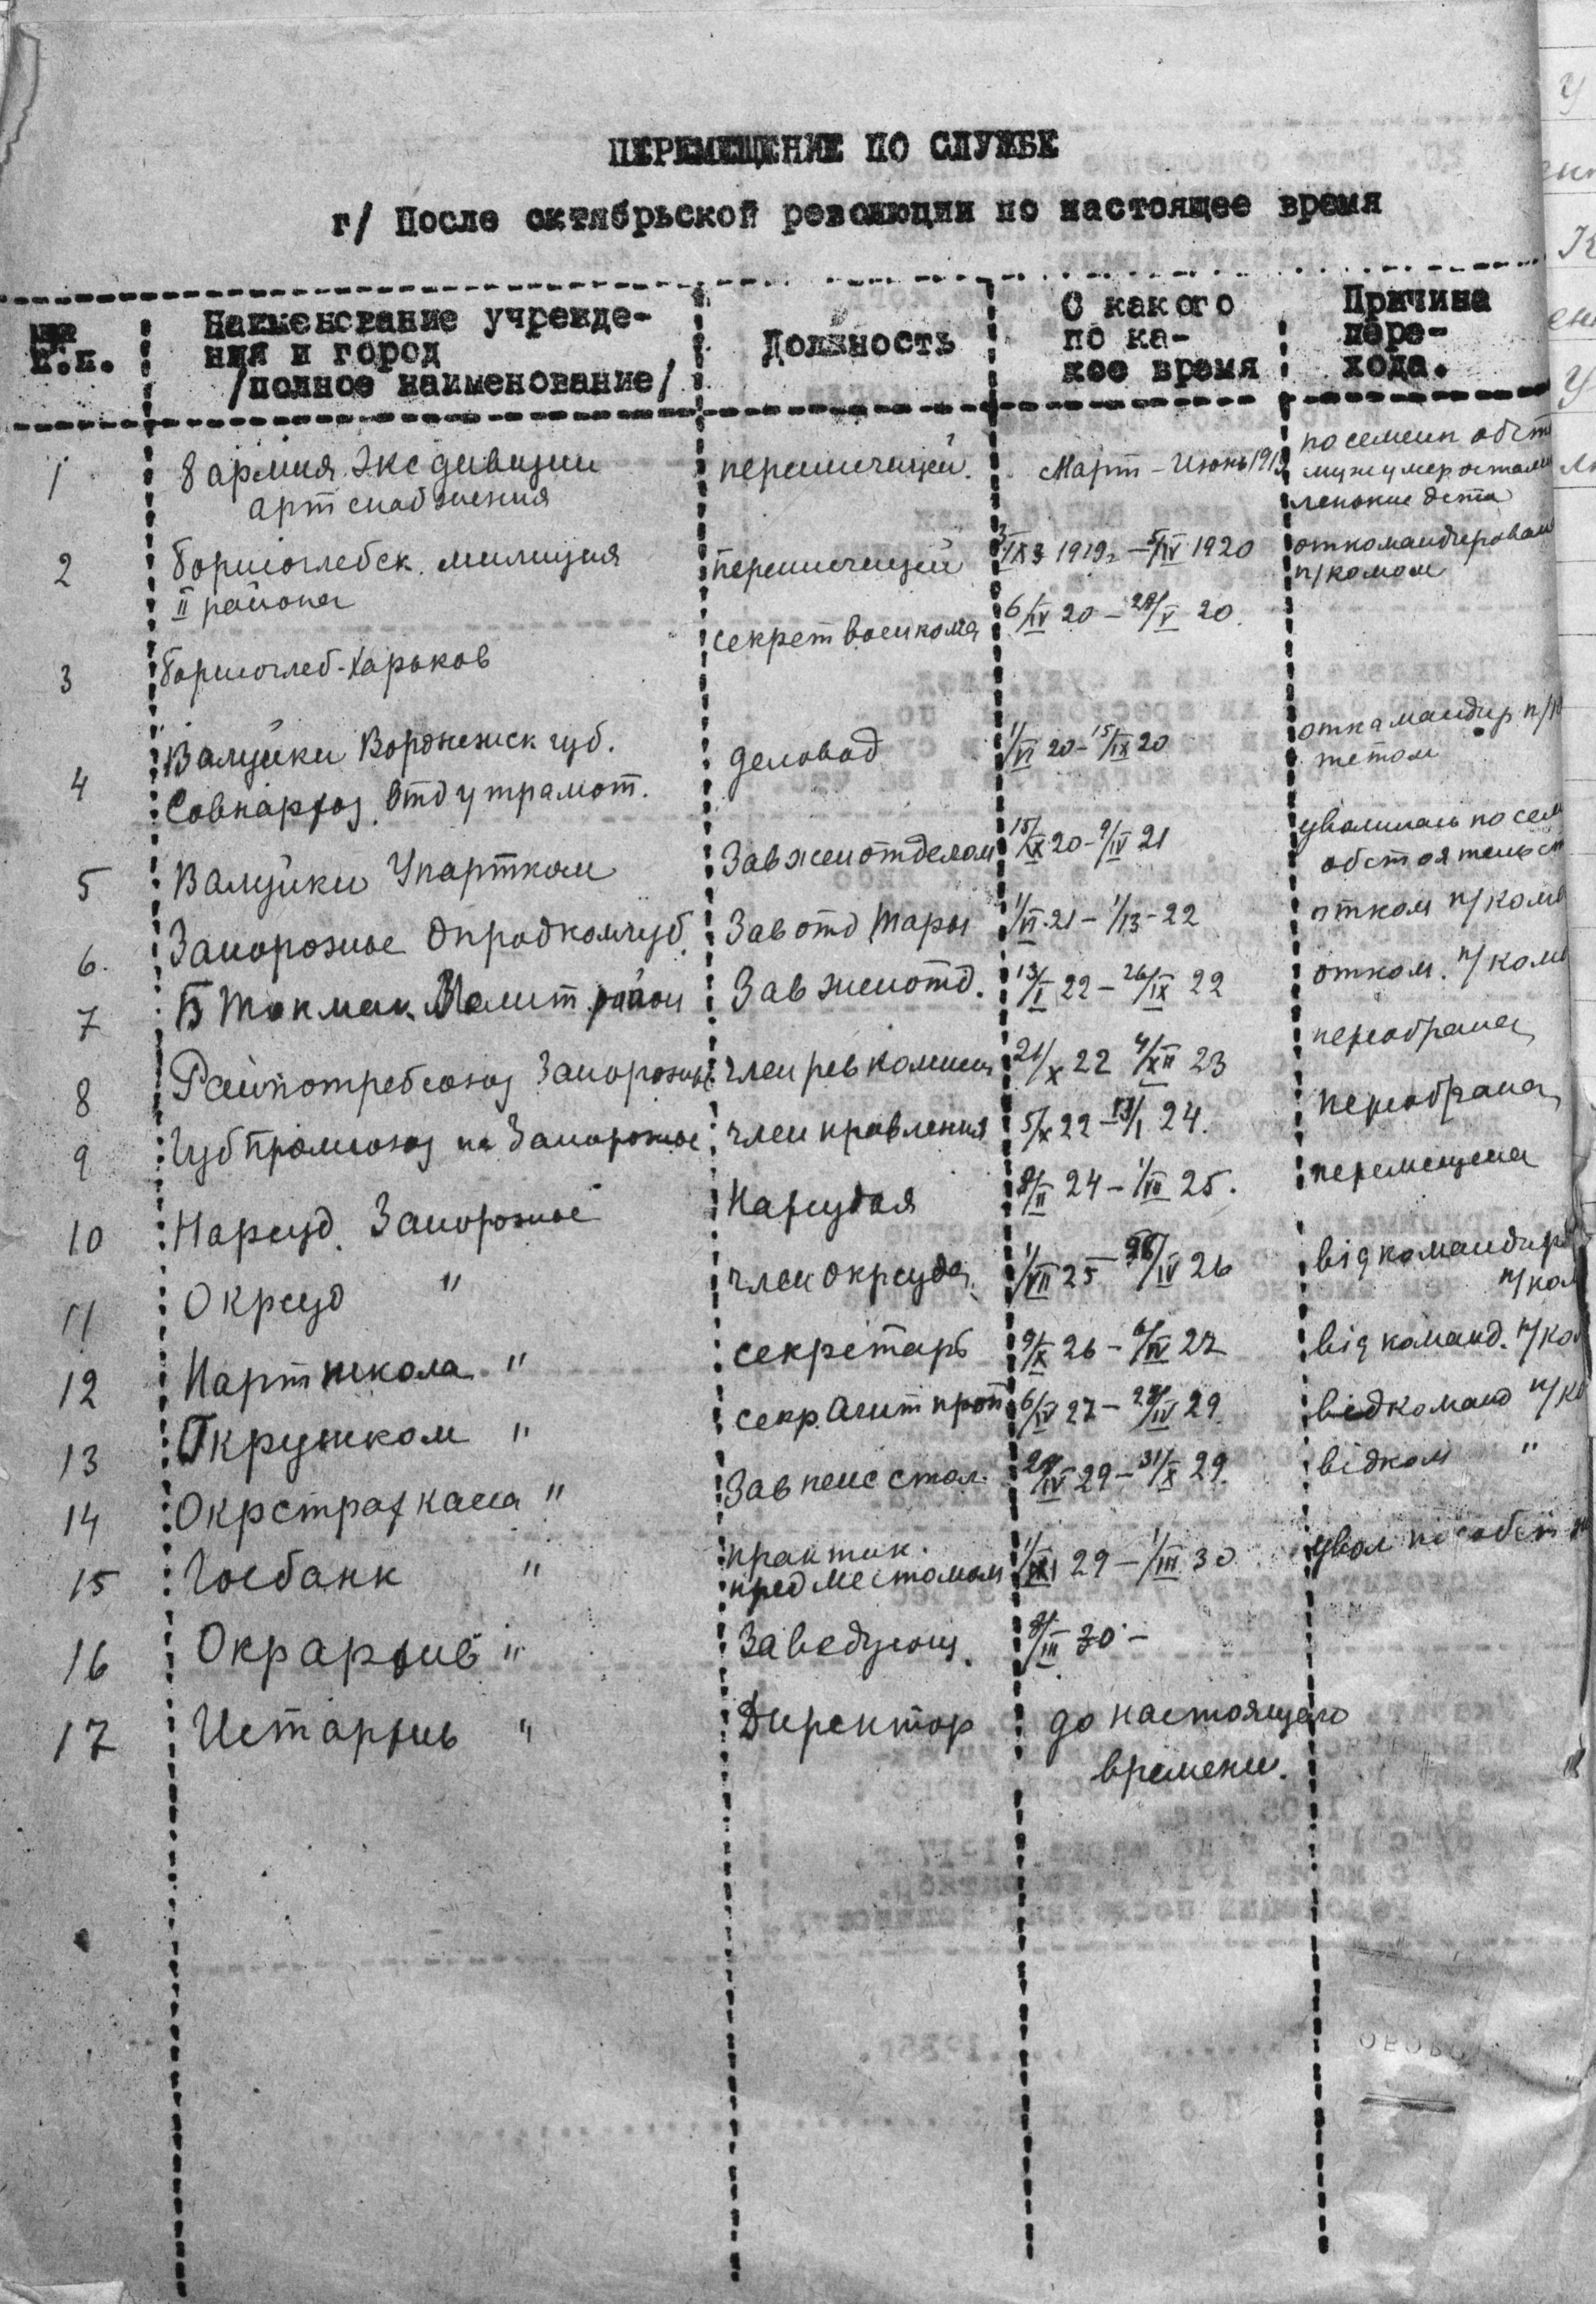 ПЕРЕМЕЩЕНИЕ ПО СЛУЖБЕ
г/ После октябрьской революции по настоящее время
№№ п.п.
Наименование учрежде-
ния и город
/полное наименование/
Должность
С какого
по ка-
кое время
Причина
пере-
хода.
1 8 армия. Экс дивизии переписчицей. Март - Июнь 191
арт снабжения
по семейн обст
муж умер остал
ленькие дети
2 Борисоглебск. милиция переписчицей IX 1919г - 5/IV 1920 откомандирован
II района п/комом
3 Борисоглеб-Харьков секрет военкома 6/IV 20 - 28/V 20.
4 Валуйки Воронежск губ. деловод 1/VI 20 - 15/IX 20 откамандир п/к
Совнархоз. Отд утрамот. тетом
5 Валуйки Упартком Зав женотделом 15/IX 20 - 9/IV 21 уволилась по сем
обстоятельст
6. Запорожье Опродкомгуб. Зав отд Тары 1/VI 21 - 1/13 - 22 отком п/ком
7 Б Токмак. Мелит. район Зав женотд. 13/I 22 - 26/IX 22 отком. п/ком
8 Райпотребсоюз Запорожье член рев комисси 21/X 22 4/XII 23 переобрана
9 Губпромсоюз Запорожье член правления 5/X 22 - 13/I 24. переобрана
10 Нарсуд. Запорожье Нарсудья 8/II 24 - 1/VII 25. перемещена
11 Окрсуд " член окрсуда. 1/VII 25 - 28/IV 26 відкомандир
п/ком
12 Парт школа " секретарь 9/X 26 - 6/IV 27 від команд. п/ко
13 Окружком " секр. Агит проп 6/IV 27 - 28/IV 29 відкоманд п/к
14 Окрстрахкасса " Зав пенс стол. 28/IV 29 - 31/X 29. відком "
15 Госбанк " практик.
пред местомом 1/XI 29 - 1/III 30 увол по собст
16 Окрархив " Заведующ. 8/III 30 -
17 Истархив " Директор до настоящего
времени.